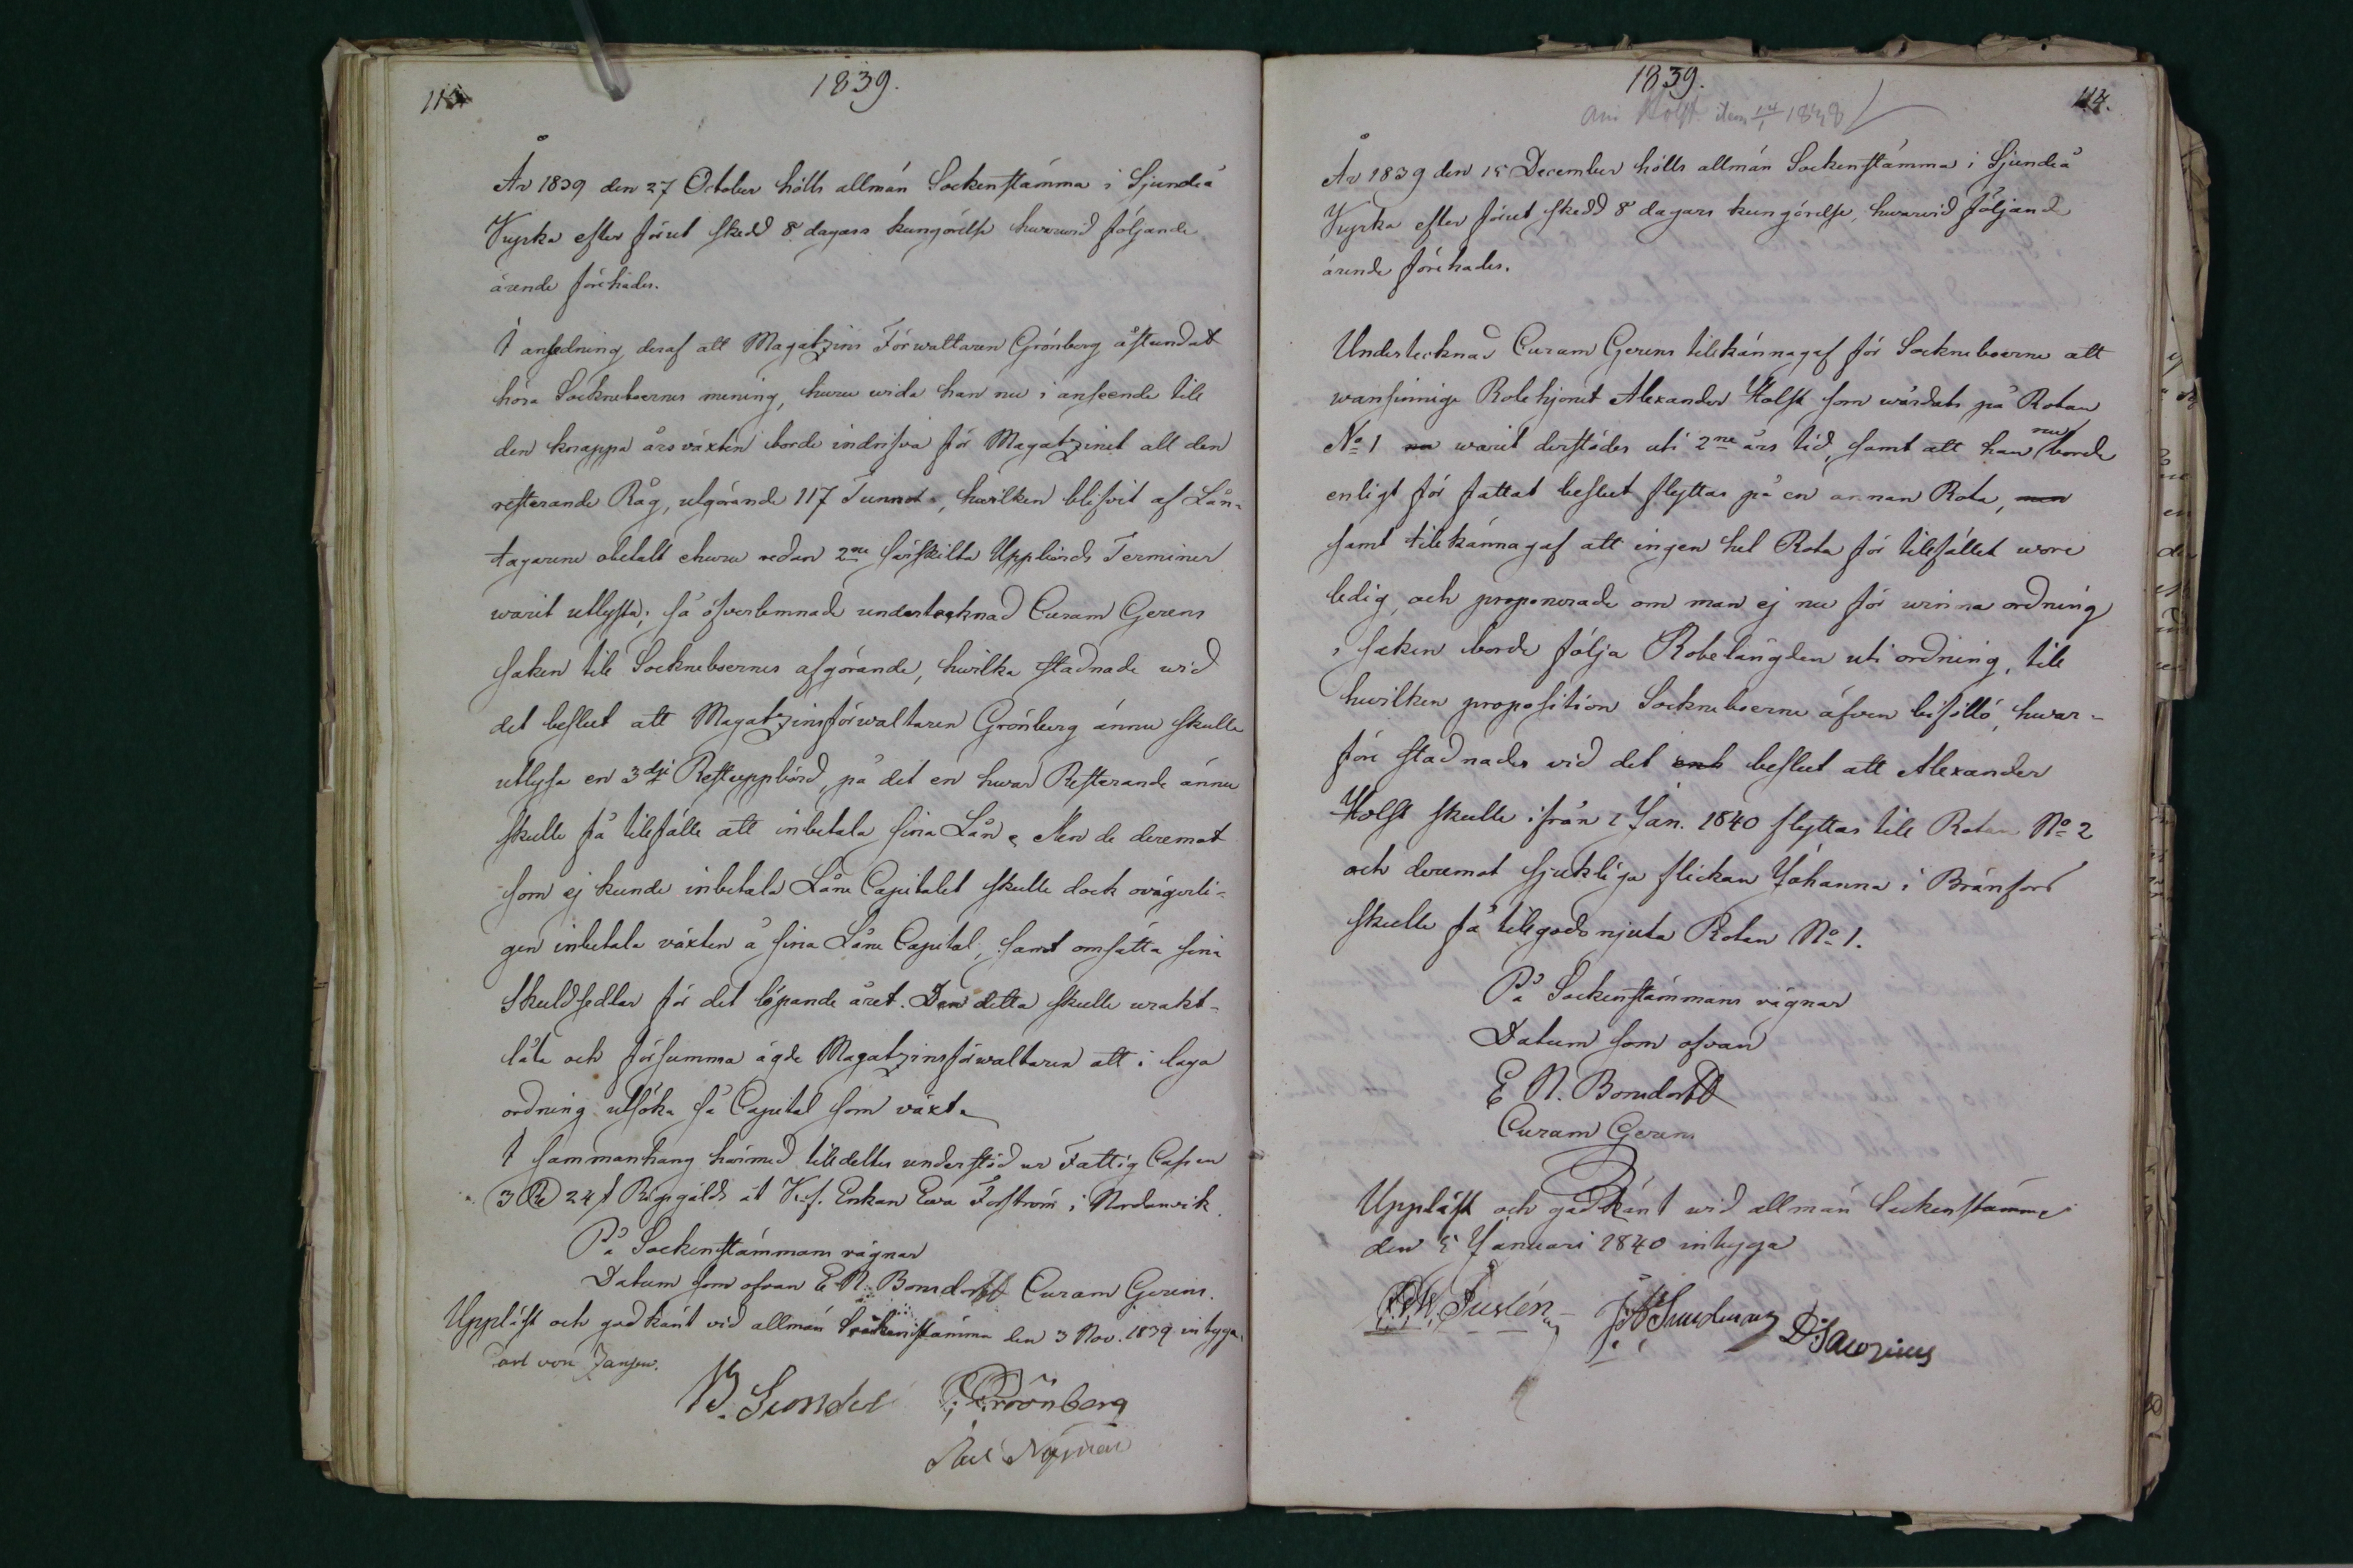 113.
1839.
År 1839 den 27 October hölls allmän Sockenstämma i Sjundeå
Kyrka efter förut skedd 8 dagars kungörelse hvarvid följande
ärende förehades.
I anledning deraf att Magatzins Förwaltaren Grönberg åstundat
höra Sockneboernes mening, huru wida han nu i anseende till
den knappa årsväxten borde indrifva för Magatzinet all den
resterande Råg, utgörande 117 Tunnor, hwilken blifvit af Lån-
tagarene obetalt ehuru redan 2ne särskilta Uppbörds Terminer
warit utlyste; så öfverlemnade undertecknad Curam Gerens
saken till Sockneboernes afgörande, hwilka stadnade wid
det beslut att Magatzinsförwaltaren Grönberg ännu skulle
utlysa en 3dje Restuppbörd, på det en hwar Resterande ännu
skulle få tillfälle att inbetala sina Lån. Men de deremot
som ej kunde inbetala Låne Capitalet skulle dock ovägerli-
gen inbetala växten å sina Låne Capital, samt omsätta sina
Skuldsedlar för det löpande året. Den detta skulle urakt-
låta och försumma ägde Magatzinsförwaltaren att i laga
ordning utsöka så Capital som växt.
I sammanhang härmed tilldeltes understöd ur Fattig Cassan
3 R 24 s Riksgälds åt Enkan Ewa Forsström i Nordanvik.
På Sockenstämmans vägnar
Datum som ofvan E. N. Bonsdorff Curam Gerens.
Uppläst och godkänt vid allmän Sockenstämma den 3 Nov. 1839 intyga.
Carl von Jansen.
W. Sundel Grönberg
Nyman
1839.
114.
Ang Holst item 14/1 1848
År 1839 den 15 December hölls allmän Sockenstämma i Sjundeå
Kyrka efter förut skedd 8 dagars kungörelse, hwarvid följande
ärende förehades.
Undertecknad Curam Gerens tillkännagaf för Sockneboerne att
wansinnige Rotehjonet Alexander Holst som wårdats på Rotan
No 1 warit derstädes uti 2ne års tid, samt att han nu borde
enligt för fattat beslut flyttas på en annan Rota, men
samt tillkännagaf att ingen hel Rota för tillfället wore
ledig, och proponerade om man ej nu för winna ordning
i saken borde följa Rotelängden uti ordning, till
hwilken proposition Sockneboerne äfven biföllo, hwar-
före stadnades vid det beslut att Alexander
Holst skulle ifrån 1 Jan. 1840 flyttas till Rotan No 2
och deremot sjukliga flickan Johanna i Bränfors
skulle få tillgodo njuta Rotan No 1.
På Sockenstämmans vägnar
Datum som ofvan
E. N. Bonsdorff
Curam Gerens
Uppläst och godkänt wid allmän Sockenstämma
den 5 Januari 1840 intyga